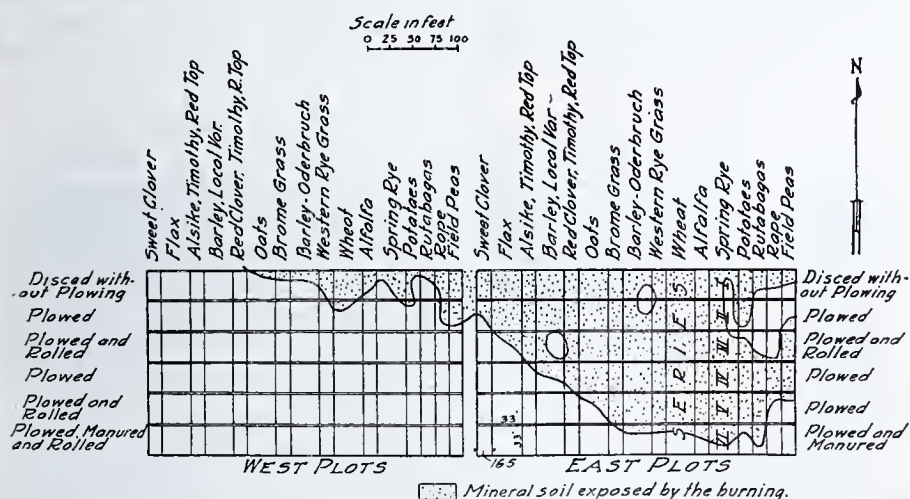 Scale in feet
0 25 50 75 100
N
Sweet Clover
Flax
Alsike, Timothy, Red Top
Barley, Local Var.
Red Clover, Timothy, R. Top
Oats
Brome Grass
Barley-Oderbruch
Western Rye Grass
Wheat
Alfalfa
Spring Rye
Potatoes
Rutabagas
Rape
Field Peas
Sweet Clover
Flax
Alsike, Timothy, Red Top
Barley, Local Var-
Red Clover, Timothy, Red Top
Oats
Brome Grass
Barley-Oderbruch
Western Rye Grass
Wheat
Alfalfa
Spring Rye
Potatoes
Rutabagas
Rape
Field Peas
Disced with-
out Plowing
Plowed
Plowed and
Rolled
Plowed
Plowed and
Rolled
Plowed, Manured
and Rolled
SERIES
I
II
III
IV
V
VI
33'
33'
16.5
Disced with-
out Plowing
Plowed
Plowed and
Rolled
Plowed
Plowed
Plowed and
Manured
WEST PLOTS
EAST PLOTS
Mineral soil exposed by the burning.